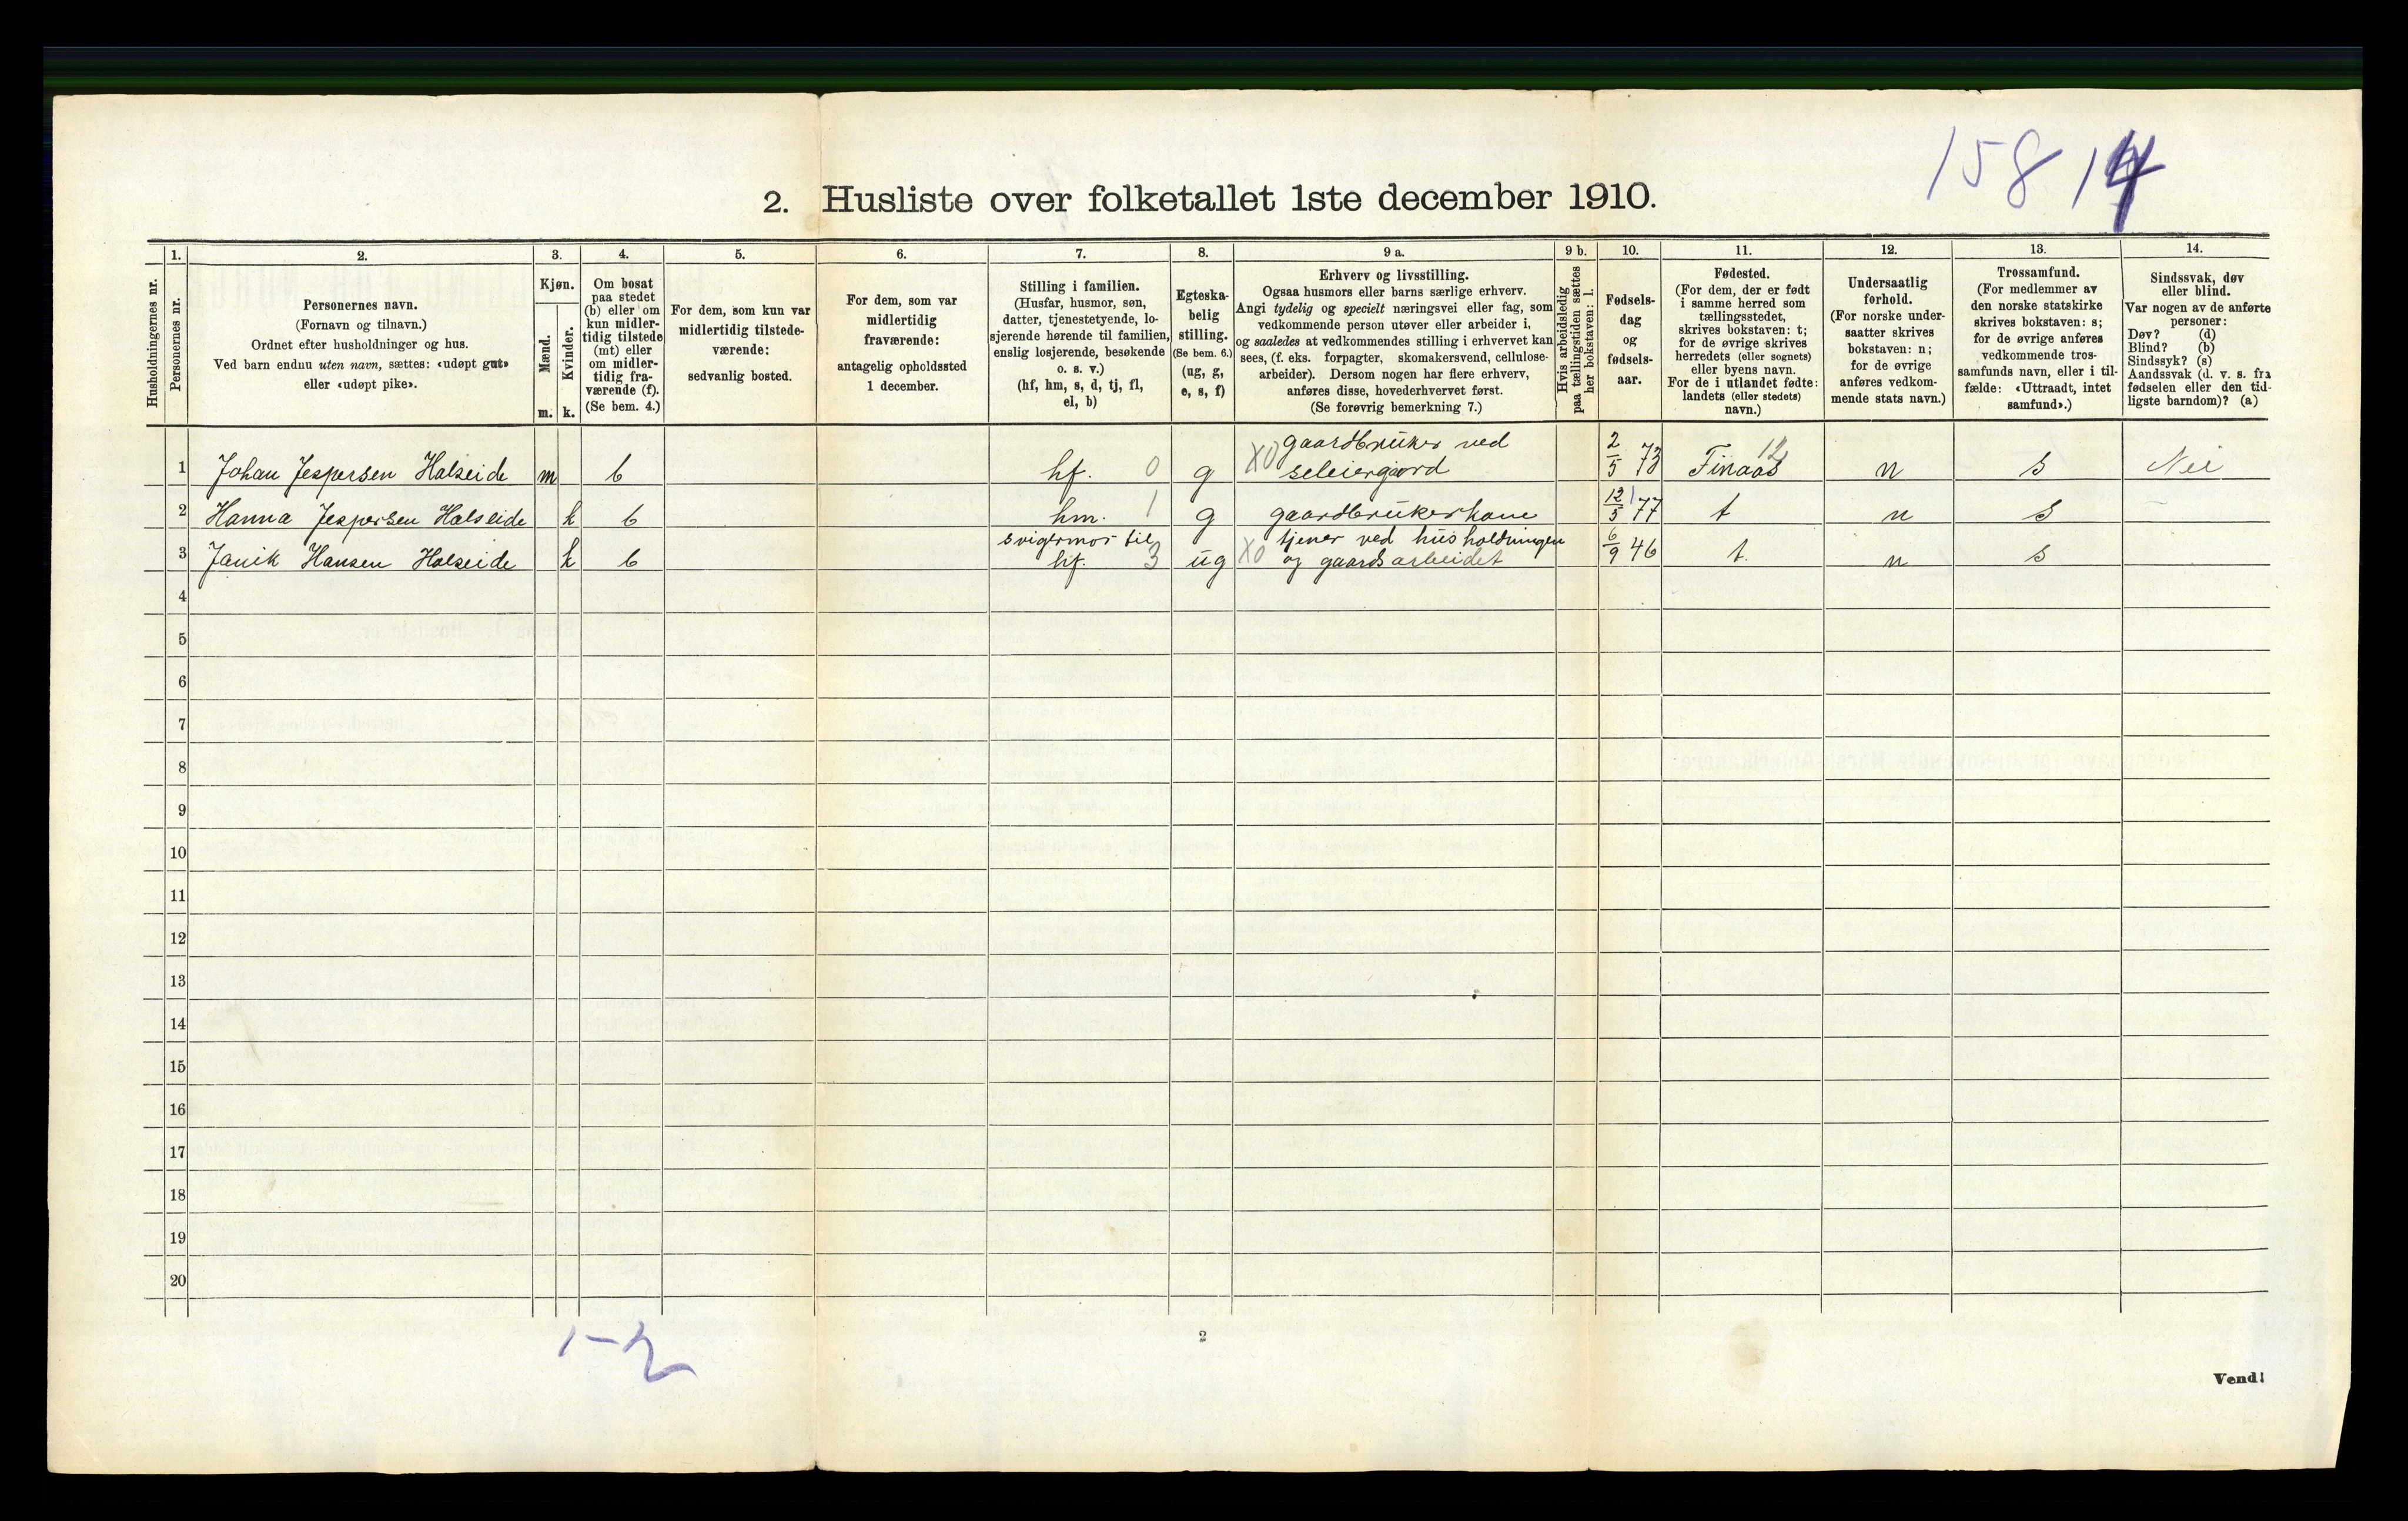 158 14
2. Husliste over folketallet 1ste december 1910.
Husholdningernes nr.
1.
Personernes nr.
2.
Personernes navn.
(Fornavn og tilnavn.)
Ordnet efter husholdninger og hus.
Ved barn endnu uten navn, sættes: «udøpt gut»
eller «udøpt pike».
3.
Kjøn.
Mænd.
Kvinder.
m. k.
4.
Om bosat
paa stedet
(b) eller om
kun midler-
tidig tilstede
(mt) eller
om midler-
tidig fra-
værende (f).
(Se bem. 4.)
5.
For dem, som kun var
midlertidig tilstede-
værende:
sedvanlig bosted.
6.
For dem, som var
midlertidig
fraværende:
antagelig opholdssted
1 december.
7.
Stilling i familien.
(Husfar, husmor, søn,
datter, tjenestetyende, lo-
sjerende hørende til familien,
enslig losjerende, besøkende
o. s. v.)
(hf, hm, s, d, tj, fl,
el, b)
8.
Egteska-
belig
stilling.
(Se bem. 6.)
(ug, g,
e, s, f)
9 a.
Erhverv og livsstilling.
Ogsaa husmors eller barns særlige erhverv.
Angi tydelig og specielt næringsvei eller fag, som
vedkommende person utøver eller arbeider i,
og saaledes at vedkommendes stilling i erhvervet kan
sees, (f. eks. forpagter, skomakersvend, cellulose-
arbeider). Dersom nogen har flere erhverv,
anføres disse, hovederhvervet først.
(Se forøvrig bemerkning 7.)
9 b.
Hvis arbeidsledig
paa tællingstiden sættes
her bokstaven: l.
10.
Fødsels-
dag
og
fødsels-
aar.
11.
Fødested.
(For dem, der er født
i samme herred som
tællingsstedet,
skrives bokstaven: t;
for de øvrige skrives
herredets (eller sognets)
eller byens navn.
For de i utlandet fødte:
landets (eller stedets)
navn.)
12.
Undersaatlig
forhold.
(For norske under-
saatter skrives
bokstaven: n;
for de øvrige
anføres vedkom-
mende stats navn.)
13.
Trossamfund.
(For medlemmer av
den norske statskirke
skrives bokstaven: s;
for de øvrige anføres
vedkommende tros-
samfunds navn, eller i til-
fælde: «Uttraadt, intet
samfund».)
14.
Sindssvak, døv
eller blind.
Var nogen av de anførte
personer:
Døv? (d)
Blind? (b)
Sindssyk? (s)
Aandssvak (d. v. s. fra
fødselen eller den tid-
ligste barndom)? (a)
1 Johan Jespersen Halseide m b hf. 0 g X0 gaardbruker ved
seleiergaard 2/5 73 Finaas 12 n s Nei
2 Hanna Jespersen Halseide k b hm. 1 g gaardbrukerkone 12/5 77 t n s
3 Janik Hansen Halseide k b svigermor til
hf. 3 ug X0 tjener ved husholdningen
og gaardsarbeidet 6/9 46 t. n s
4
5
6
7
8
9
10
11
12
13
14
15
16
17
18
19
20
1-2
2
Vend!